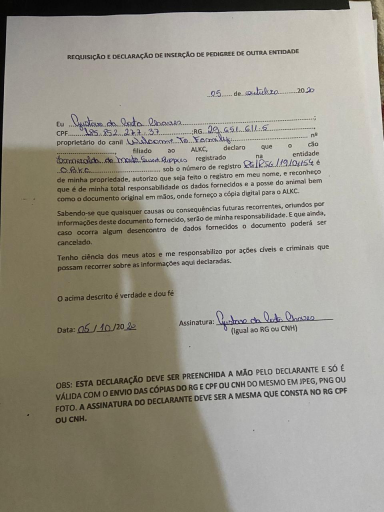 REQUISIÇÃO E DECLARAÇÃO DE INSERÇÃO DE PEDIGREE DE OUTRA ENTIDADE
05 de outubro 2020
Eu Gustavo da
CPF RG 29.651.611-5 nº
proprietário do canil Welcome To Family
filiado ao ALKC, declaro que o cão
registrado na entidade
sob o número de registro é
de minha propriedade, autorizo que seja feito o registro em meu nome, e reconheço
que é de minha total responsabilidade os dados fornecidos e a posse do animal bem
como o documento original em mãos, onde forneço a cópia digital para o ALKC.
Sabendo-se que quaisquer causas ou consequências futuras recorrentes, oriundos por
informações deste documento fornecido, serão de minha responsabilidade. E que ainda,
caso ocorra algum desencontro de dados fornecidos o documento poderá ser
cancelado.
Tenho ciência dos meus atos e me responsabilizo por ações cíveis e criminais que
possam recorrer sobre as informações aqui declaradas.
O acima descrito é verdade e dou fé
Data: 05/10/2020 Assinatura: Gustavo da
(igual ao RG ou CNH)
OBS: ESTA DECLARAÇÃO DEVE SER PREENCHIDA A MÃO PELO DECLARANTE E SÓ É
VÁLIDA COM O ENVIO DAS CÓPIAS DO RG E CPF OU CNH DO MESMO EM JPEG, PNG OU
FOTO. A ASSINATURA DO DECLARANTE DEVE SER A MESMA QUE CONSTA NO RG CPF
OU CNH.